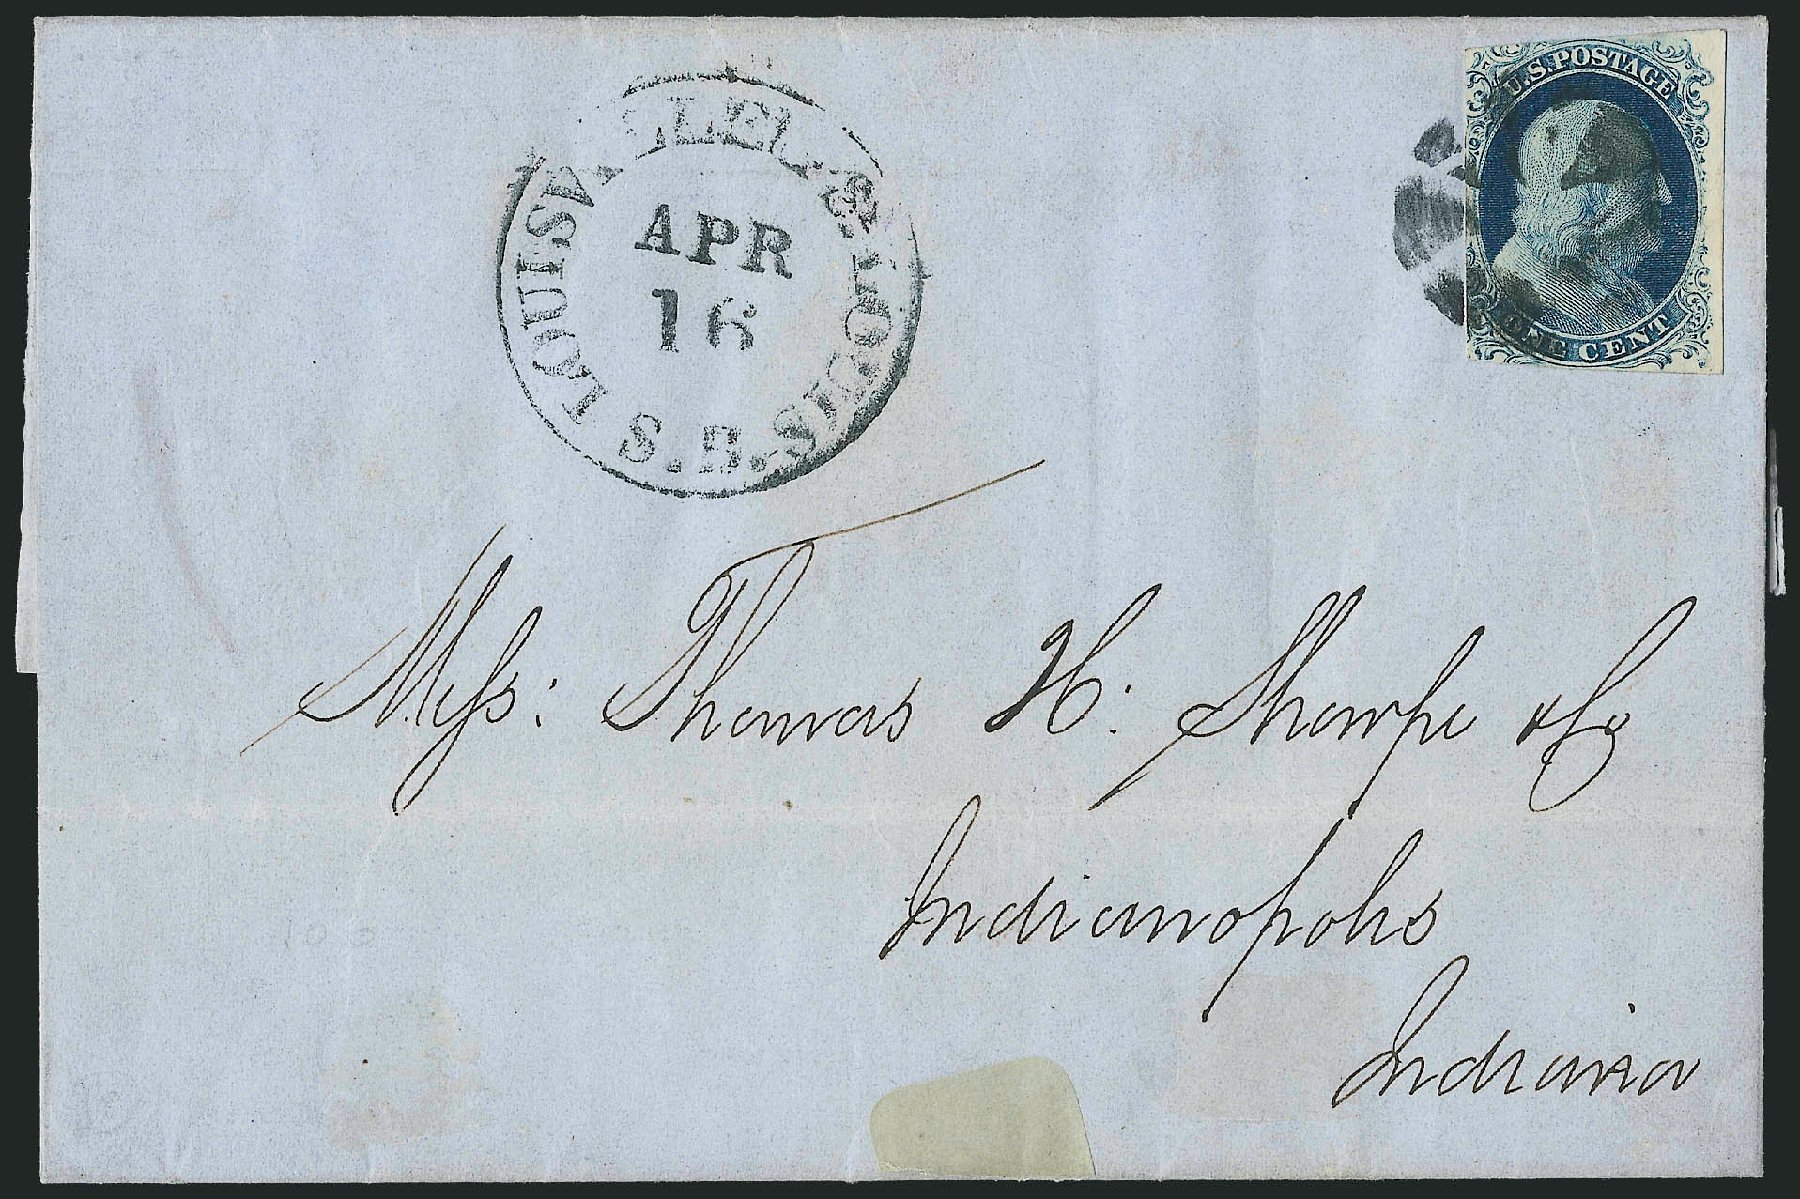 U.S. POSTAGE
ONE CENT
LOUISVILLE & S. LOUIS S. B.
APR
16
Mess: Thomas H. Sharpe & Co
Indianopolis
Indiana